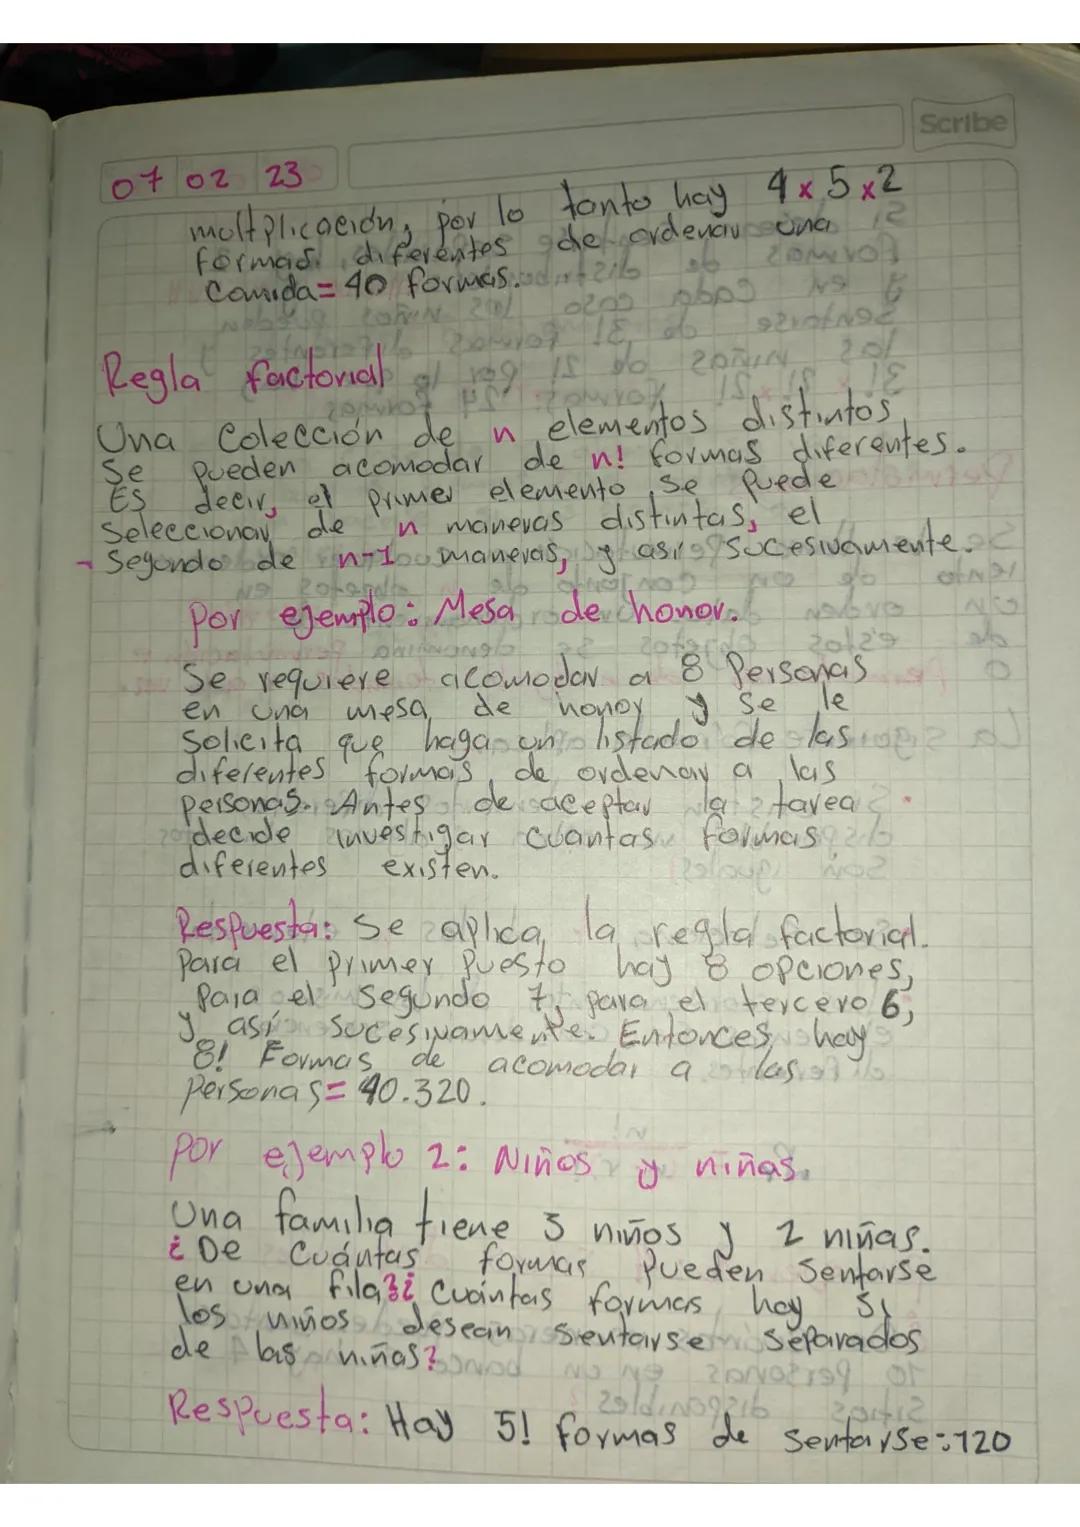 Scribe
07 02 23
moltplicación, por lo tanto hay 4 x 5 x 2
formas diferentes de ordenar una
Comida = 40 formas.
Regla factorial
Una Colección de n elementos distintos
Se pueden acomodar de n! formas diferentes.
Es decir, el primer elemento se puede
Seleccionar de n maneras distintas, el
- Segundo de n-1 maneras, y así sucesivamente.
Por ejemplo: Mesa de honor.
Se requiere acomodar a 8 Personas
en una mesa de honor y se le
Solicita que haga un listado de las
diferentes formas de ordenar a las
personas. Antes de aceptar la tarea
decide investigar cuantas formas
diferentes existen.
Respuesta: Se aplica la regla factorial.
Para el primer Puesto hay 8 opciones,
Para el Segundo 7, para el tercero 6,
y así sucesivamente. Entonces hay
8! Formas de acomodar a las
Personas = 40.320.
Por ejemplo 2: Niños y niñas.
Una familia tiene 3 niños y 2 niñas.
¿De Cuántas formas Pueden Sentarse
en una fila? ¿Cuántas formas hay Si
los niños desean Sentarse Separados
de las niñas?
Respuesta: Hay 5! formas de Sentarse: 120